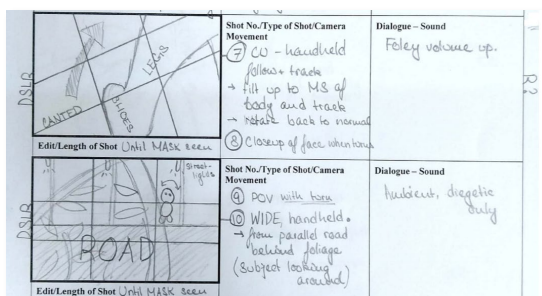 DSLR
CANTED
SHOES
LEGS
Edit/Length of Shot Until MASK seen
Shot No./Type of Shot/Camera
Movement
⑦ CU - handheld
follow + track
→ tilt up to MS of
body and track
→ rotate back to normal
⑧ Closeup of face when turns
Dialogue – Sound
Foley volume up.
R2
DSLR
Street-
lights
ROAD
Edit/Length of Shot Until MASK seen
Shot No./Type of Shot/Camera
Movement
⑨ POV with turn
⑩ WIDE, handheld.
→ from parallel road
behind foliage
(subject looking
around)
Dialogue – Sound
Ambient, diegetic
only